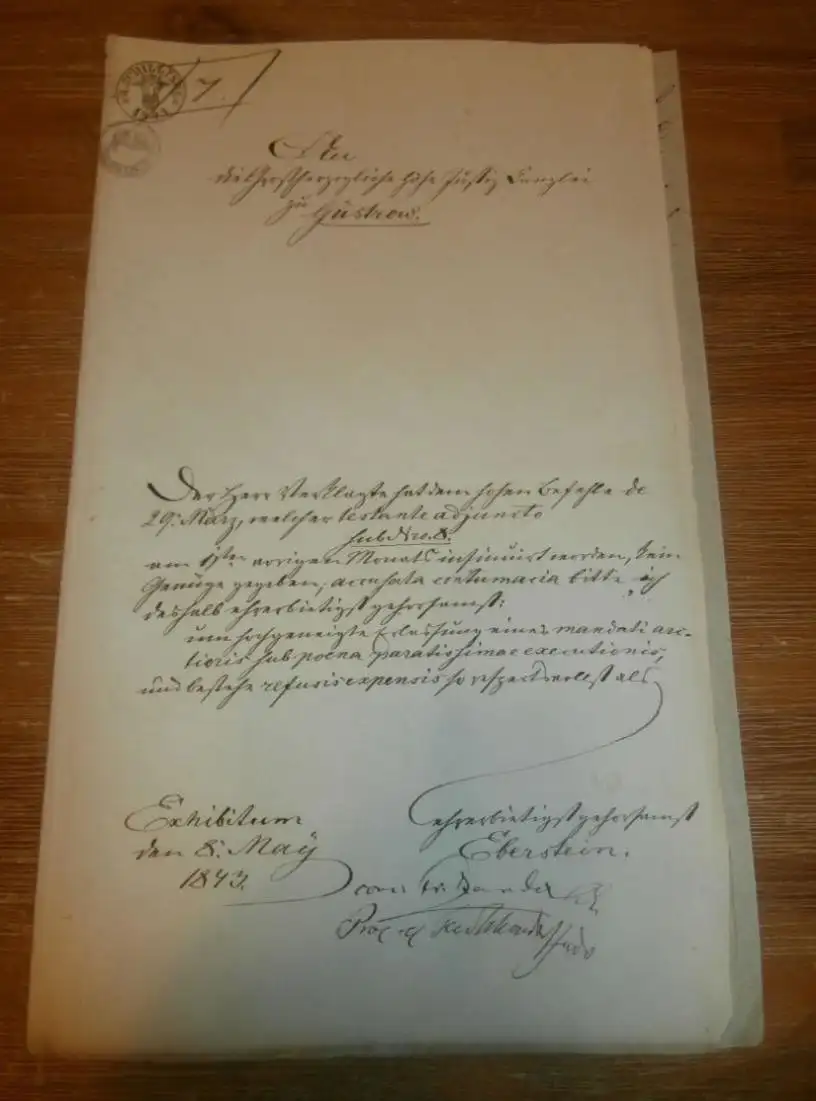 7.
An
die Großherzogliche hohe Justiz Canzlei
zu Güstrow.
Der Herr Verklagte hat dem hohen Befehle de
29. März, welcher testante adjuncto
sub Nro. 8.
am 1sten vorigen Monats insinuirt worden, kein
Genüge gegeben; accusata contumacia bitte ich
deshalb ehrerbietigst gehorsamst:
um hochgeneigte Erlassung eines mandati arc-
tioris sub poena paratissimae executionis,
und bestehe refusis expensis so respectvollst als
Exhibitum
den 8. May
1843.
ehrerbietigst gehorsamst
Eberstein.